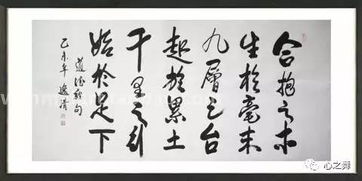 合抱之木
生於毫末
九層之台
起於累土
千里之行
始於足下
道德经句
乙未年逸清
心之舞